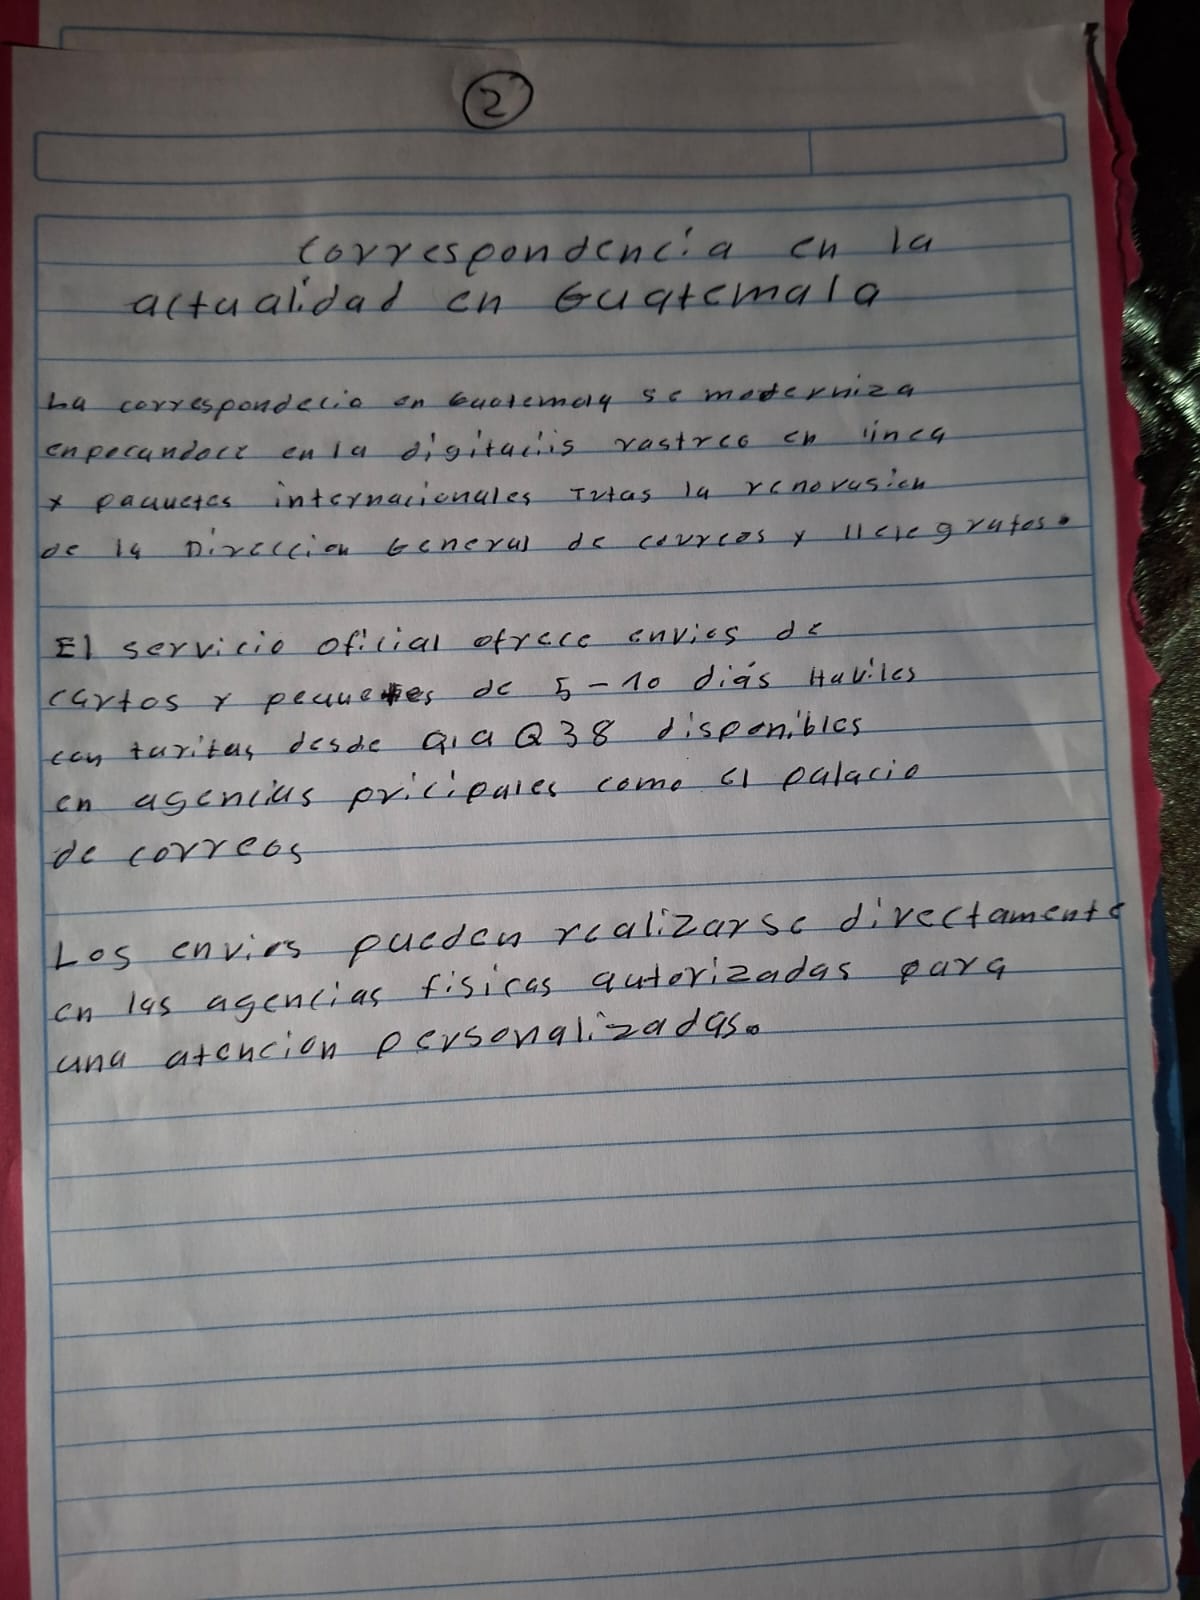 2
Correspondencia en la
actualidad en Guatemala
La correspondecia en Guatemala se moderniza
en la rastreo en linea
y paquetes internacionales Tutas la renovasion
de la Direccion General de correos y
El servicio oficial ofrece envios de
cartos y de 5-10 diás Haviles
con tarifas desde Q1 a Q38 disponibles
en agencias pricipales como el palacio
de correos
Los envios pueden realizarse directamente
en las agencias fisicas autorizadas para
una atencion personalizadas.